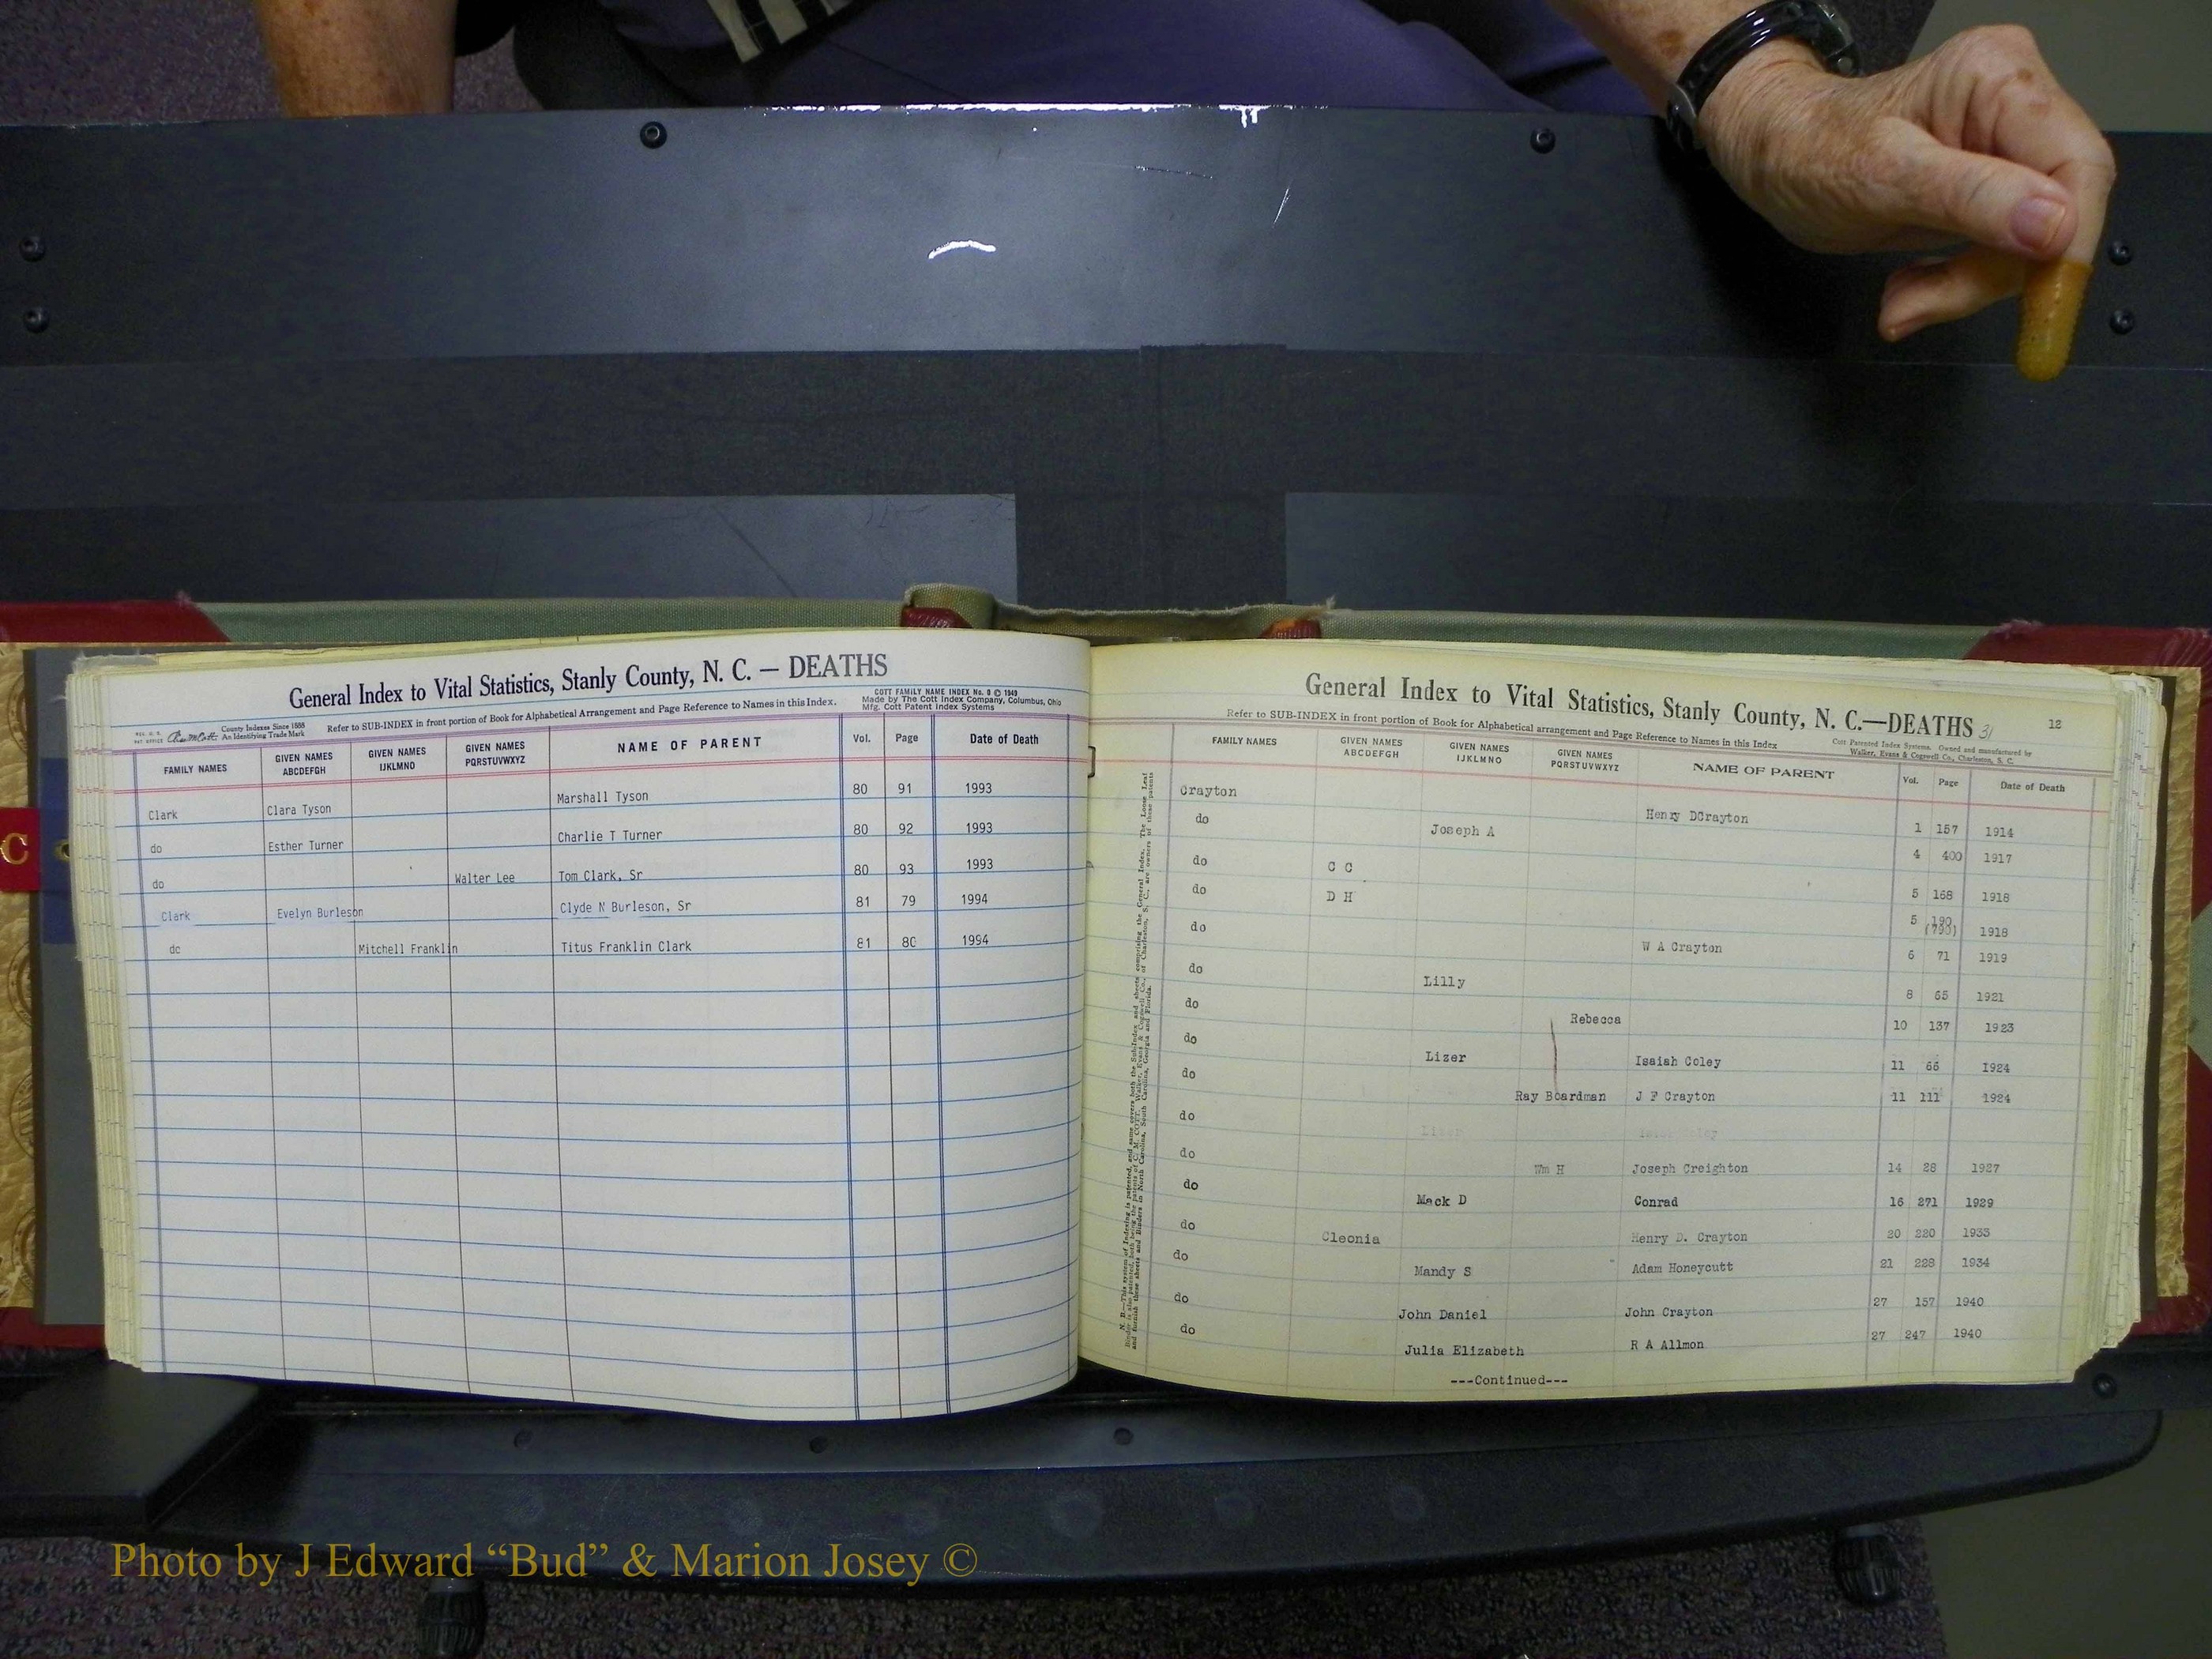 General Index to Vital Statistics, Stanly County, N. C. — DEATHS
COTT FAMILY NAME INDEX No. 0 © 1949
Made by The Cott Index Company, Columbus, Ohio
Mfg. Cott Patent Index Systems
County Indexes Since 1888
An Identifying Trade Mark
Refer to SUB-INDEX in front portion of Book for Alphabetical Arrangement and Page Reference to Names in this Index.
FAMILY NAMES GIVEN NAMES ABCDEFGH GIVEN NAMES IJKLMNO GIVEN NAMES PQRSTUVWXYZ NAME OF PARENT Vol. Page Date of Death
Clark Clara Tyson Marshall Tyson 80 91 1993
do Esther Turner Charlie T Turner 80 92 1993
do Walter Lee Tom Clark, Sr 80 93 1993
Clark Evelyn Burleson Clyde N Burleson, Sr 81 79 1994
do Mitchell Franklin Titus Franklin Clark 81 80 1994
C
General Index to Vital Statistics, Stanly County, N. C.—DEATHS 31 12
Refer to SUB-INDEX in front portion of Book for Alphabetical arrangement and Page Reference to Names in this Index
Cott Patented Index Systems. Owned and manufactured by
Walker, Evans & Cogswell Co., Charleston, S. C.
FAMILY NAMES GIVEN NAMES ABCDEFGH GIVEN NAMES IJKLMNO GIVEN NAMES PQRSTUVWXYZ NAME OF PARENT Vol. Page Date of Death
Crayton Henry DCrayton 1 157 1914
do Joseph A 4 400 1917
do C C 5 168 1918
do D H 5 190 (790) 1918
do W A Crayton 6 71 1919
do Lilly 8 65 1921
do Rebecca 10 137 1923
do Lizer Isaiah Coley 11 66 1924
do Ray Boardman J F Crayton 11 111 1924
do
do Wm H Joseph Creighton 14 28 1927
do Mack D Conrad 16 271 1929
do Cleonia Henry D. Crayton 20 220 1933
do Mandy S Adam Honeycutt 21 228 1934
do John Daniel John Crayton 27 157 1940
do Julia Elizabeth R A Allmon 27 247 1940
---Continued---
Photo by J Edward “Bud” & Marion Josey ©